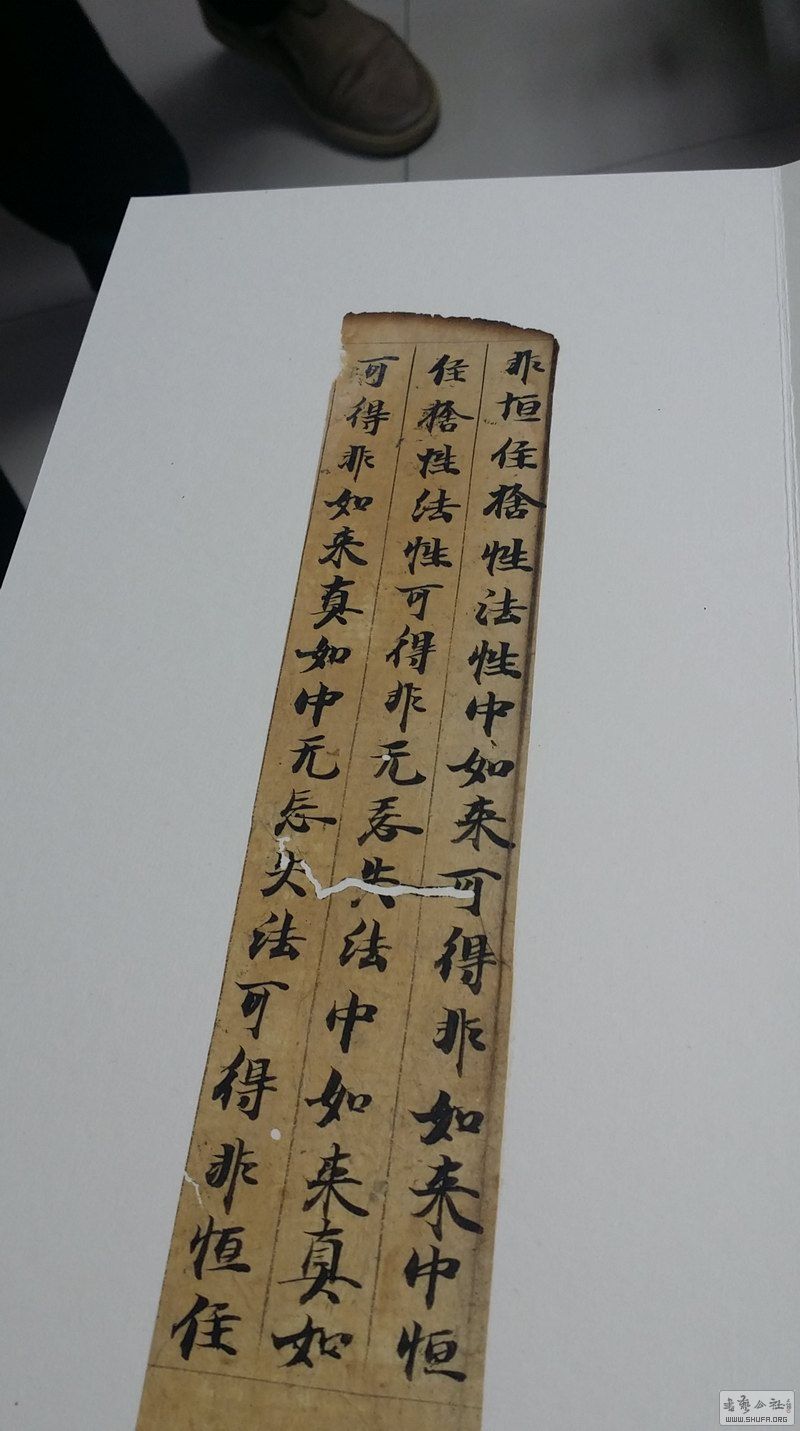 非恒住捨性法性中如来可得非如来中恒
住捨性法性可得非无忘失法中如来真如
可得非如来真如中无忘失法可得非恒住
書艺公社
WWW.SHUFA.ORG